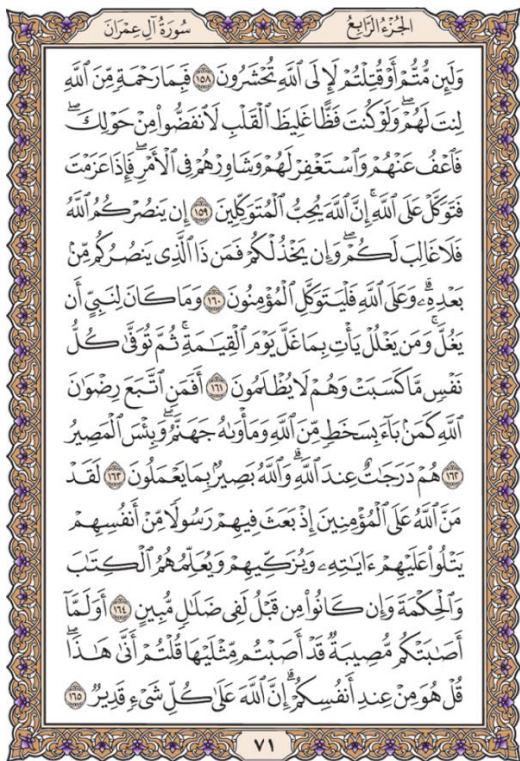 الجُزْءُ الرَّابِعُ
سُورَةُ آلِ عِمْرَانَ
وَلَئِن مُّتُّمْ أَوْ قُتِلْتُمْ لَإِلَى ٱللَّهِ تُحْشَرُونَ ١٥٨ فَبِمَا رَحْمَةٍ مِّنَ ٱللَّهِ
لِنتَ لَهُمْۖ وَلَوْ كُنتَ فَظًّا غَلِيظَ ٱلْقَلْبِ لَٱنفَضُّوا۟ مِنْ حَوْلِكَۖ
فَٱعْفُ عَنْهُمْ وَٱسْتَغْفِرْ لَهُمْ وَشَاوِرْهُمْ فِى ٱلْأَمْرِۖ فَإِذَا عَزَمْتَ
فَتَوَكَّلْ عَلَى ٱللَّهِۚ إِنَّ ٱللَّهَ يُحِبُّ ٱلْمُتَوَكِّلِينَ ١٥٩ إِن يَنصُرْكُمُ ٱللَّهُ
فَلَا غَالِبَ لَكُمْۖ وَإِن يَخْذُلْكُمْ فَمَن ذَا ٱلَّذِى يَنصُرُكُم مِّنۢ
بَعْدِهِۦۗ وَعَلَى ٱللَّهِ فَلْيَتَوَكَّلِ ٱلْمُؤْمِنُونَ ١٦٠ وَمَا كَانَ لِنَبِىٍّ أَن
يَغُلَّۚ وَمَن يَغْلُلْ يَأْتِ بِمَا غَلَّ يَوْمَ ٱلْقِيَٰمَةِۚ ثُمَّ تُوَفَّىٰ كُلُّ
نَفْسٍ مَّا كَسَبَتْ وَهُمْ لَا يُظْلَمُونَ ١٦١ أَفَمَنِ ٱتَّبَعَ رِضْوَٰنَ
ٱللَّهِ كَمَنۢ بَآءَ بِسَخَطٍ مِّنَ ٱللَّهِ وَمَأْوَىٰهُ جَهَنَّمُۖ وَبِئْسَ ٱلْمَصِيرُ
١٦٢ هُمْ دَرَجَٰتٌ عِندَ ٱللَّهِۗ وَٱللَّهُ بَصِيرٌۢ بِمَا يَعْمَلُونَ ١٦٣ لَقَدْ
مَنَّ ٱللَّهُ عَلَى ٱلْمُؤْمِنِينَ إِذْ بَعَثَ فِيهِمْ رَسُولًا مِّنْ أَنفُسِهِمْ
يَتْلُوا۟ عَلَيْهِمْ ءَايَٰتِهِۦ وَيُزَكِّيهِمْ وَيُعَلِّمُهُمُ ٱلْكِتَٰبَ
وَٱلْحِكْمَةَ وَإِن كَانُوا۟ مِن قَبْلُ لَفِى ضَلَٰلٍ مُّبِينٍ ١٦٤ أَوَلَمَّآ
أَصَٰبَتْكُم مُّصِيبَةٌ قَدْ أَصَبْتُم مِّثْلَيْهَا قُلْتُمْ أَنَّىٰ هَٰذَاۖ
قُلْ هُوَ مِنْ عِندِ أَنفُسِكُمْۗ إِنَّ ٱللَّهَ عَلَىٰ كُلِّ شَىْءٍ قَدِيرٌ ١٦٥
٧١